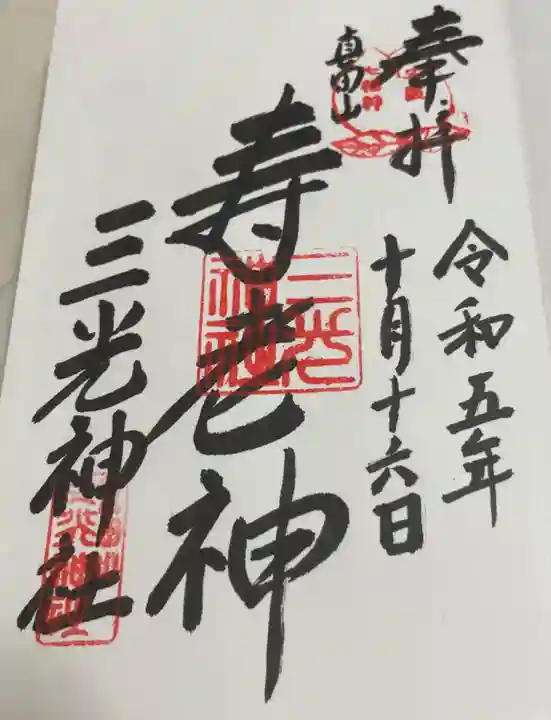 奉拝
真田山
令和五年
十月十六日
寿老神
三光神社
三光神社